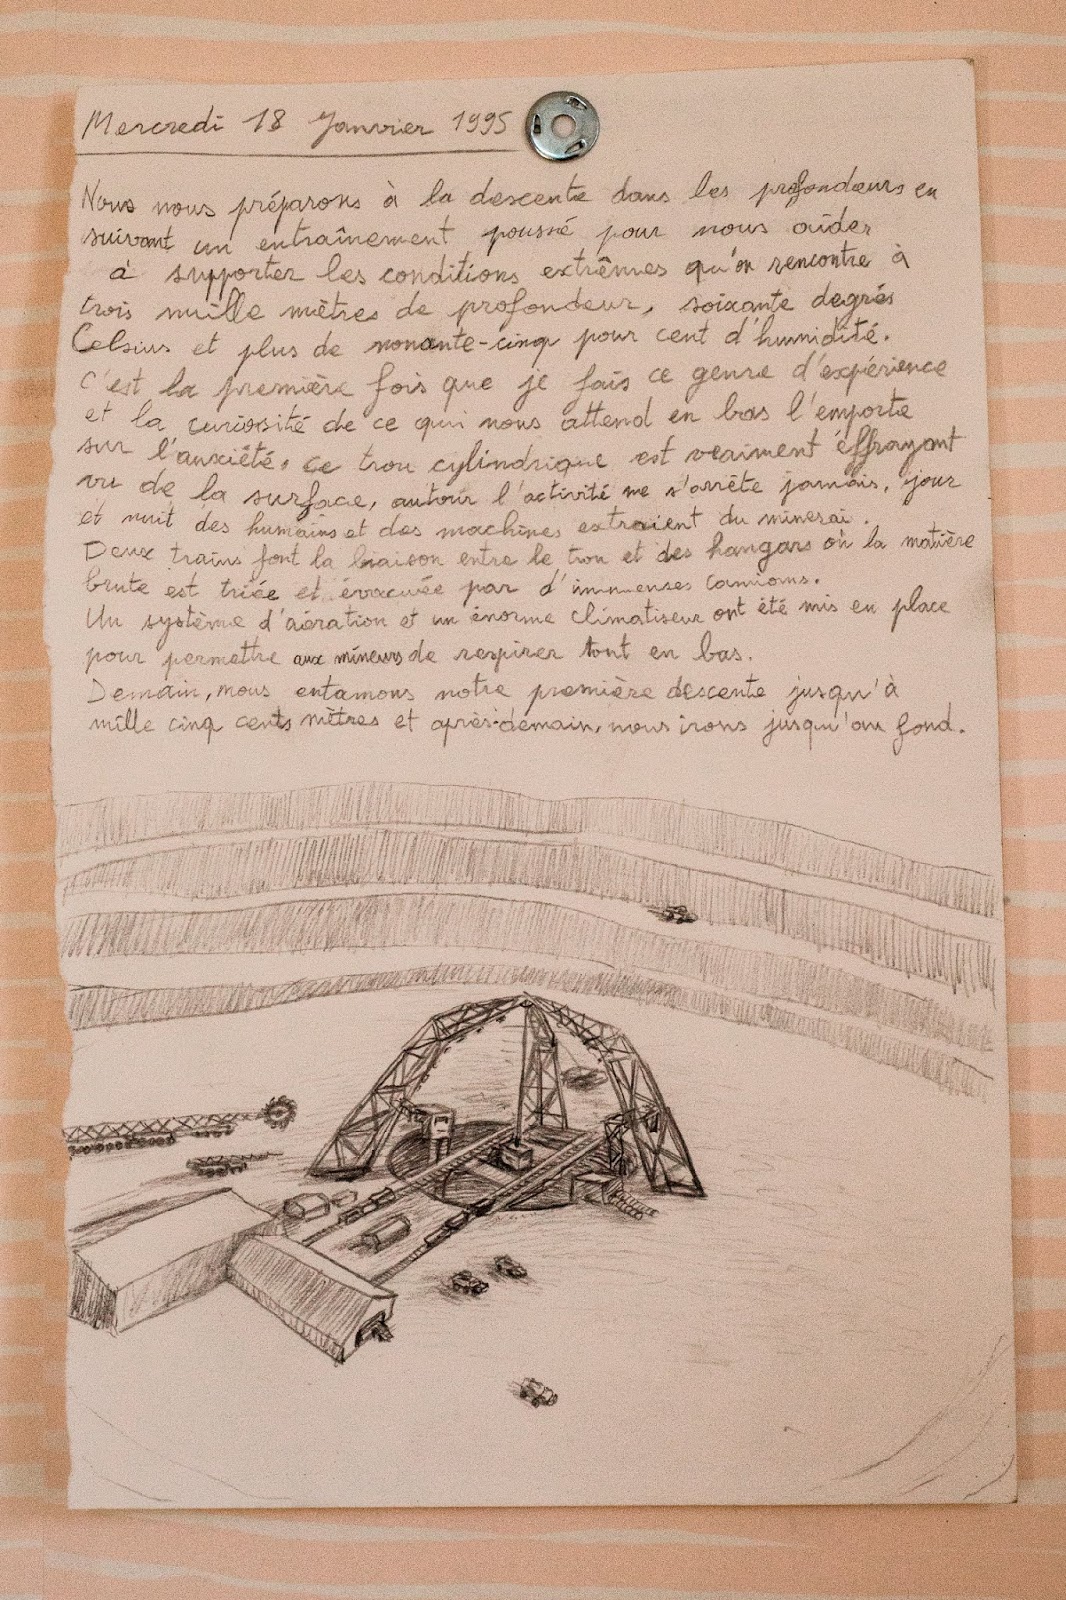 Mercredi 18 Janvier 1995
Nous nous préparons à la descente dans les profondeurs en
suivant un entraînement poussé pour nous aider
à supporter les conditions extrêmes qu'on rencontre à
trois mille mètres de profondeur, soixante degrés
Celsius et plus de nonante-cinq pour cent d'humidité.
C'est la première fois que je fais ce genre d'expérience
et la curiosité de ce qui nous attend en bas l'emporte
sur l'anxiété, ce trou cylindrique est vraiment effrayant
vu de la surface, autour l'activité ne s'arrête jamais, jour
et nuit des humains et des machines extraient du minerai.
Deux trains font la liaison entre le trou et des hangars où la matière
brute est triée et évacuée par d'immenses camions.
Un système d'aération et un énorme climatiseur ont été mis en place
pour permettre aux mineurs de respirer tout en bas.
Demain, nous entamons notre première descente jusqu'à
mille cinq cents mètres et après-demain, nous irons jusqu'au fond.